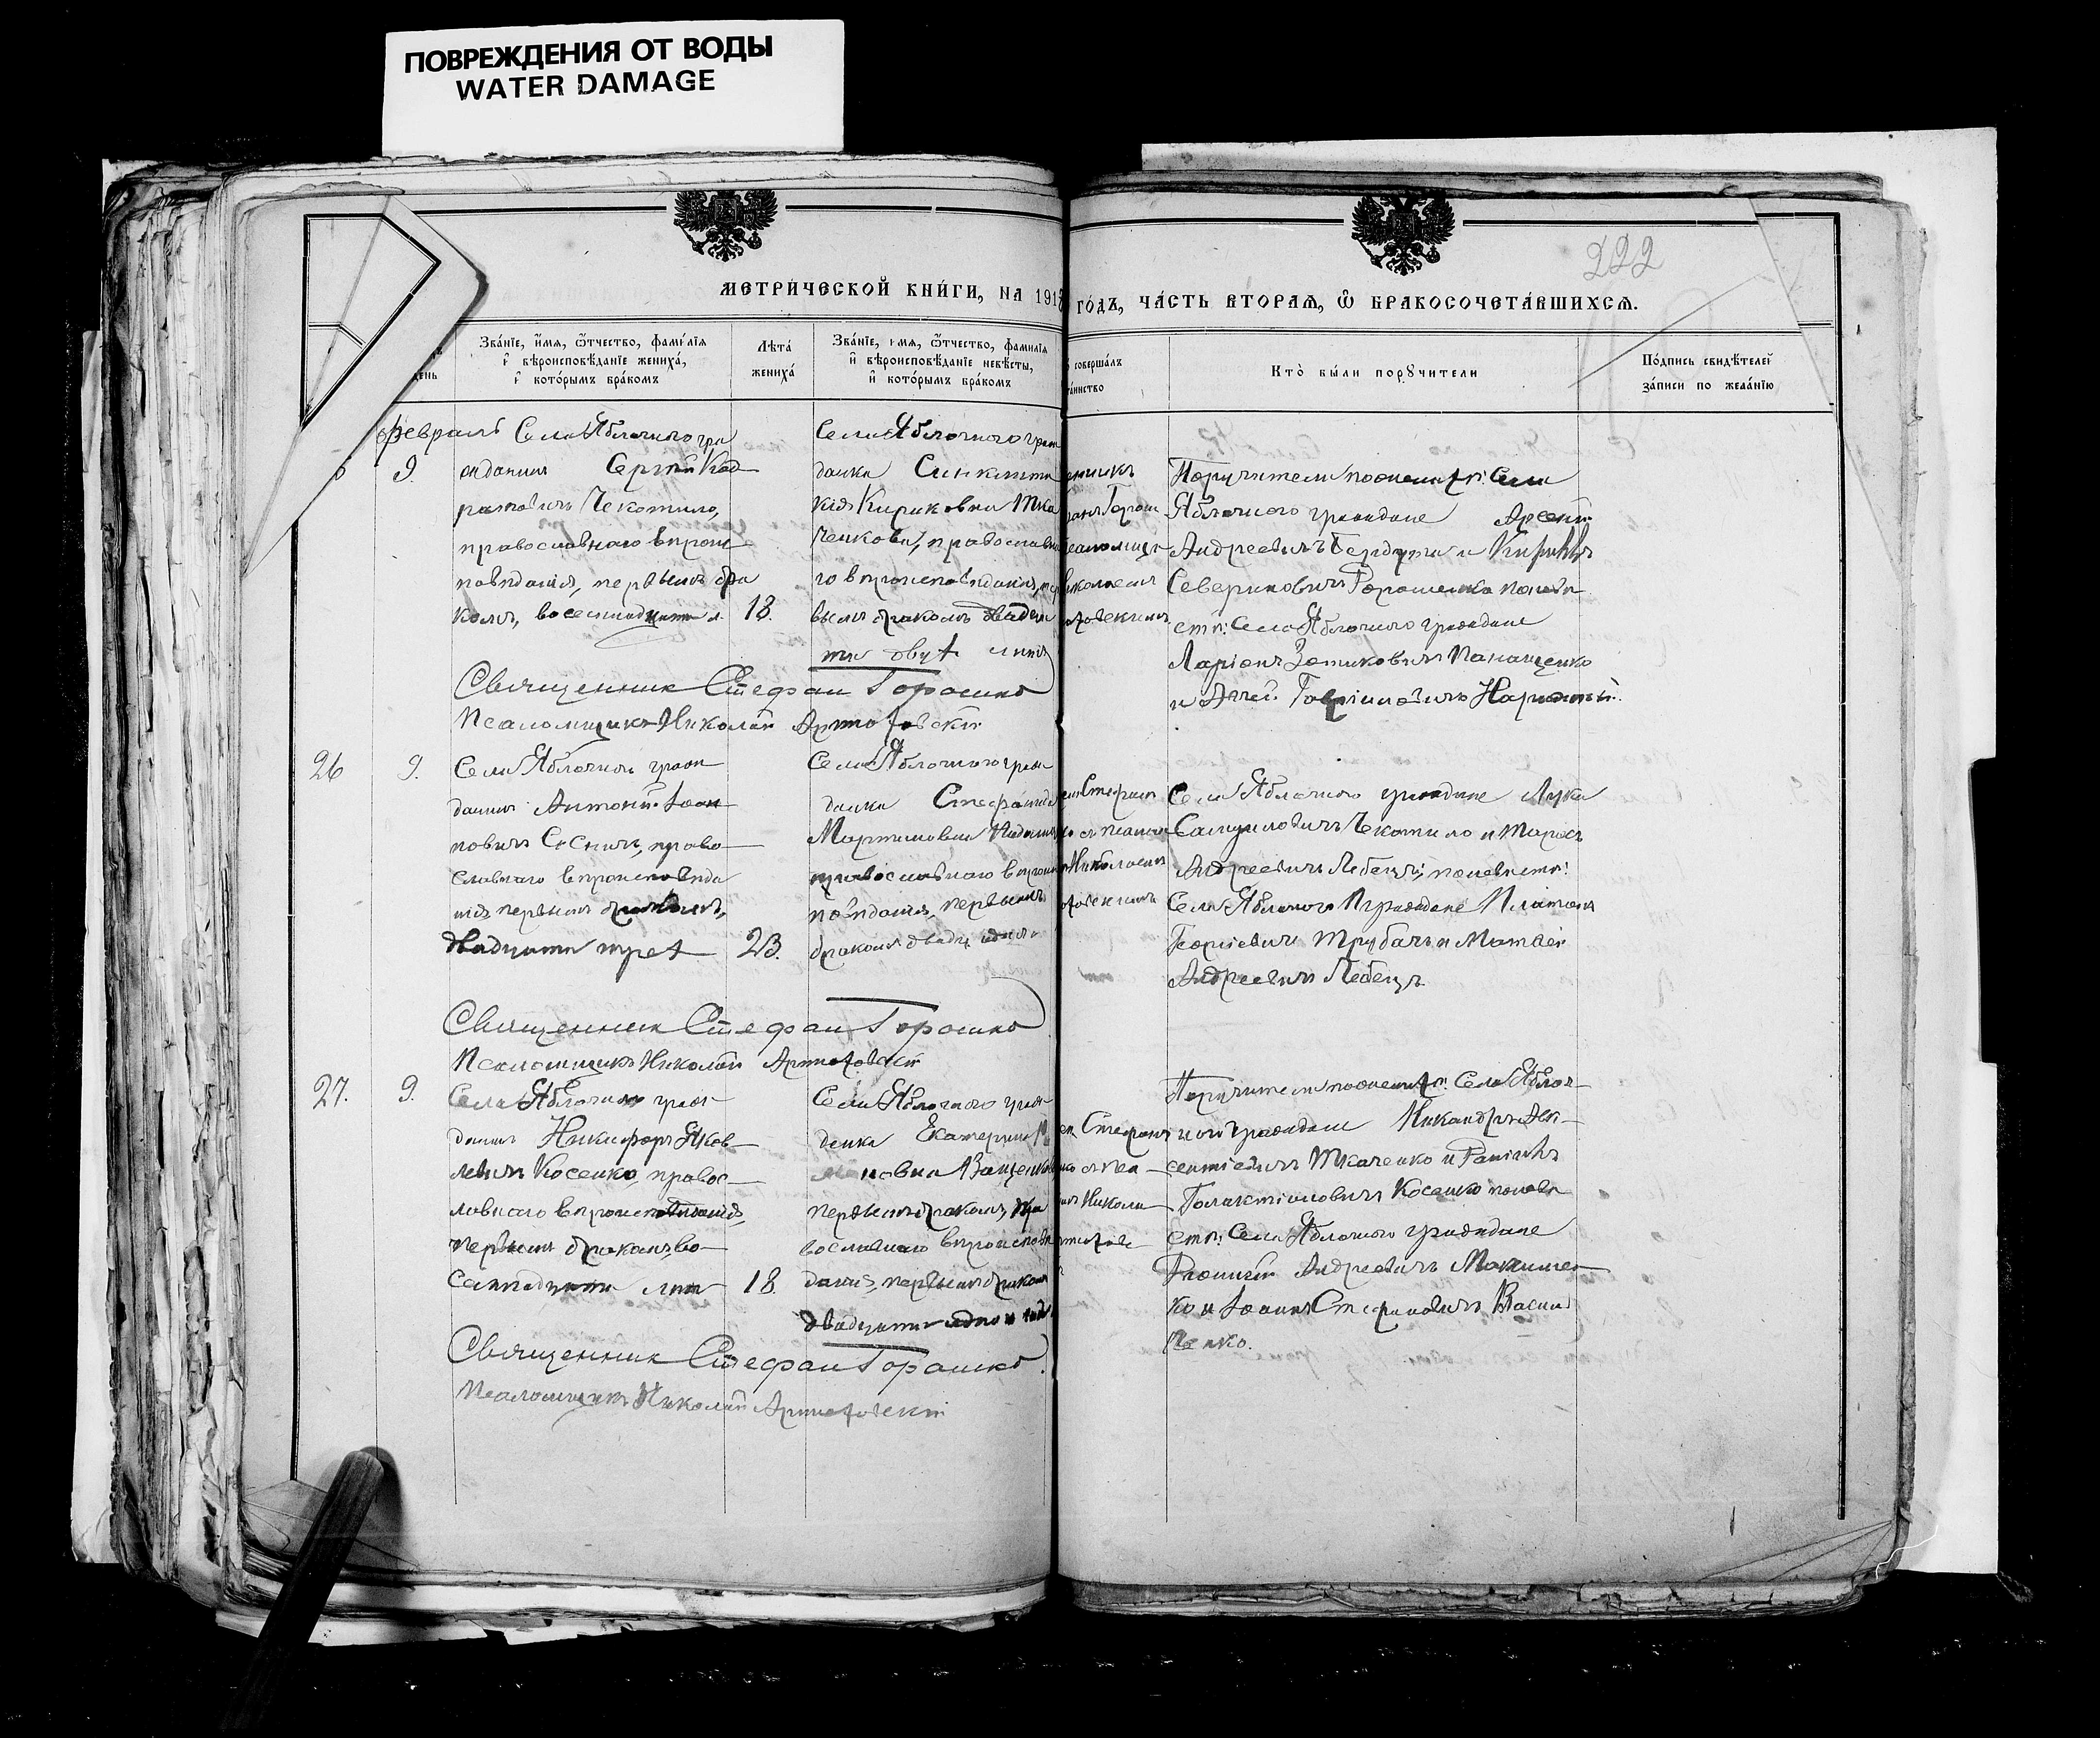 ПОВРЕЖДЕНИЯ ОТ ВОДЫ
WATER DAMAGE
222
МЕТРИ́ЧЕСКОЙ КНИ́ГИ, НА 1918 ГО́ДЪ, ЧА́СТЬ ВТОРАѦ, Ѽ БРАКОСОЧЕТА́ВШИХСѦ.
день
Зва́нїе, и҆́мѧ, ѻ҆́тчество, фами́лїѧ
и҆ вѣроисповѣ́данїе жениха́,
и҆ кото́рымъ бра́комъ
Лѣта̀
жениха̀
Зва́нїе, и҆́мѧ, ѻ҆́тчество, фами́лїѧ
и҆ вѣроисповѣ́данїе невѣ́сты,
и҆ кото́рымъ бра́комъ
совершáлъ
таинство
Кто̀ бы́ли порꙋчи́тели
По́дпись свидѣ́телей
за́писи по жела́нїю
Февраль
9.
Села Яблочного гра
жданинъ Сергѣй Код
ратовичъ Чекотило,
православнаго вѣроис
повѣданія, первымъ бра
комъ, восемнадцати л.
18.
Села Яблочного граж
данка Синклити
кія Кириковна Тка
ченкова, православна
го вѣроисповѣданія, пер
вымъ бракомъ двадца
ти двух лѣтъ
Поручители по жениху: Села
Яблочного граждане Арсеній
Андреевичъ Бердута и Кирикъ
Севериновичъ Горошенко по невѣ
стѣ: Села Яблочного граждане
Ларіонъ Зотиковичъ Панащенко
и Гавріиловичъ
Священник Стефан Горошко
Псаломщикъ Николай Артюховскій
26
9.
Села Яблочного граж
данинъ Антоній Іоан
новичъ Сѣсникъ, право
славнаго вѣроисповѣда
нія первымъ бракомъ,
двадцати трех
23.
Села Яблочного граж
данка Стефанида
Мартиновна
православнаго вѣроис
повѣданія, первымъ
бракомъ двадц. одного
Села Яблочного граждане Лука
Самуиловичъ Чекотило и Тарасъ
Андреевичъ Лебецъ; по невѣстѣ:
Села Яблочного граждане Платонъ
Георгіевичъ Трубачъ и Матвѣй
Андреевичъ Лебецъ.
Священник Стефан Горошко
Псаломщикъ Николай Артюховскій
27.
9.
Села Яблочного граж
данинъ Никифоръ Яков
левичъ Косенко, правос
лавнаго вѣроисповѣданія,
первымъ бракомъ, во
семнадцати лѣт
18.
Села Яблочного граж
данка Екатерина
новна Ващенкова
первымъ бракомъ, пра
вославнаго вѣроисповѣ
данія, первымъ бракомъ
двадцати одного года
Поручители по жениху: Села Яблоч
ного граждане Никандръ Авк
сентіевичъ Ткаченко и
Галактіоновичъ Косенко по невѣ
стѣ: Села Яблочного граждане
Андреевичъ
ко и Іоаннъ Стефановичъ Васил
ченко.
Священник Стефан Горошко
Псаломщикъ Николай Артюховскій